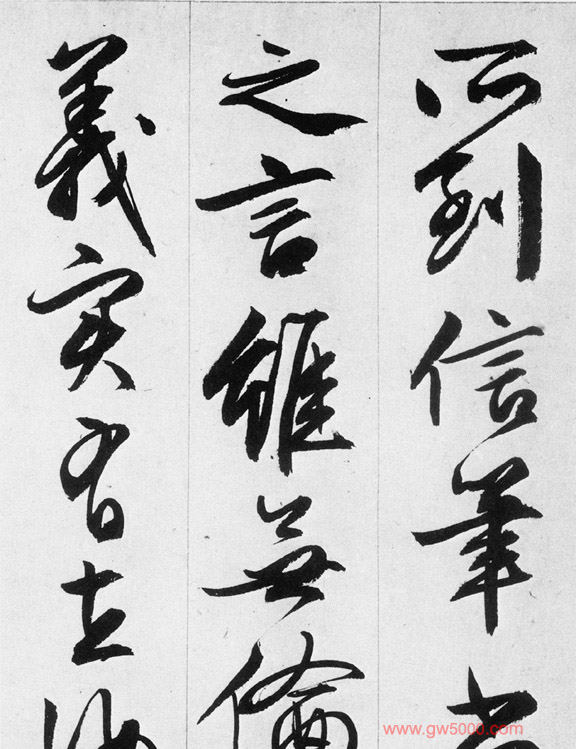 所到信筆
之言雖無倫
義實有在
www.gw5000.com